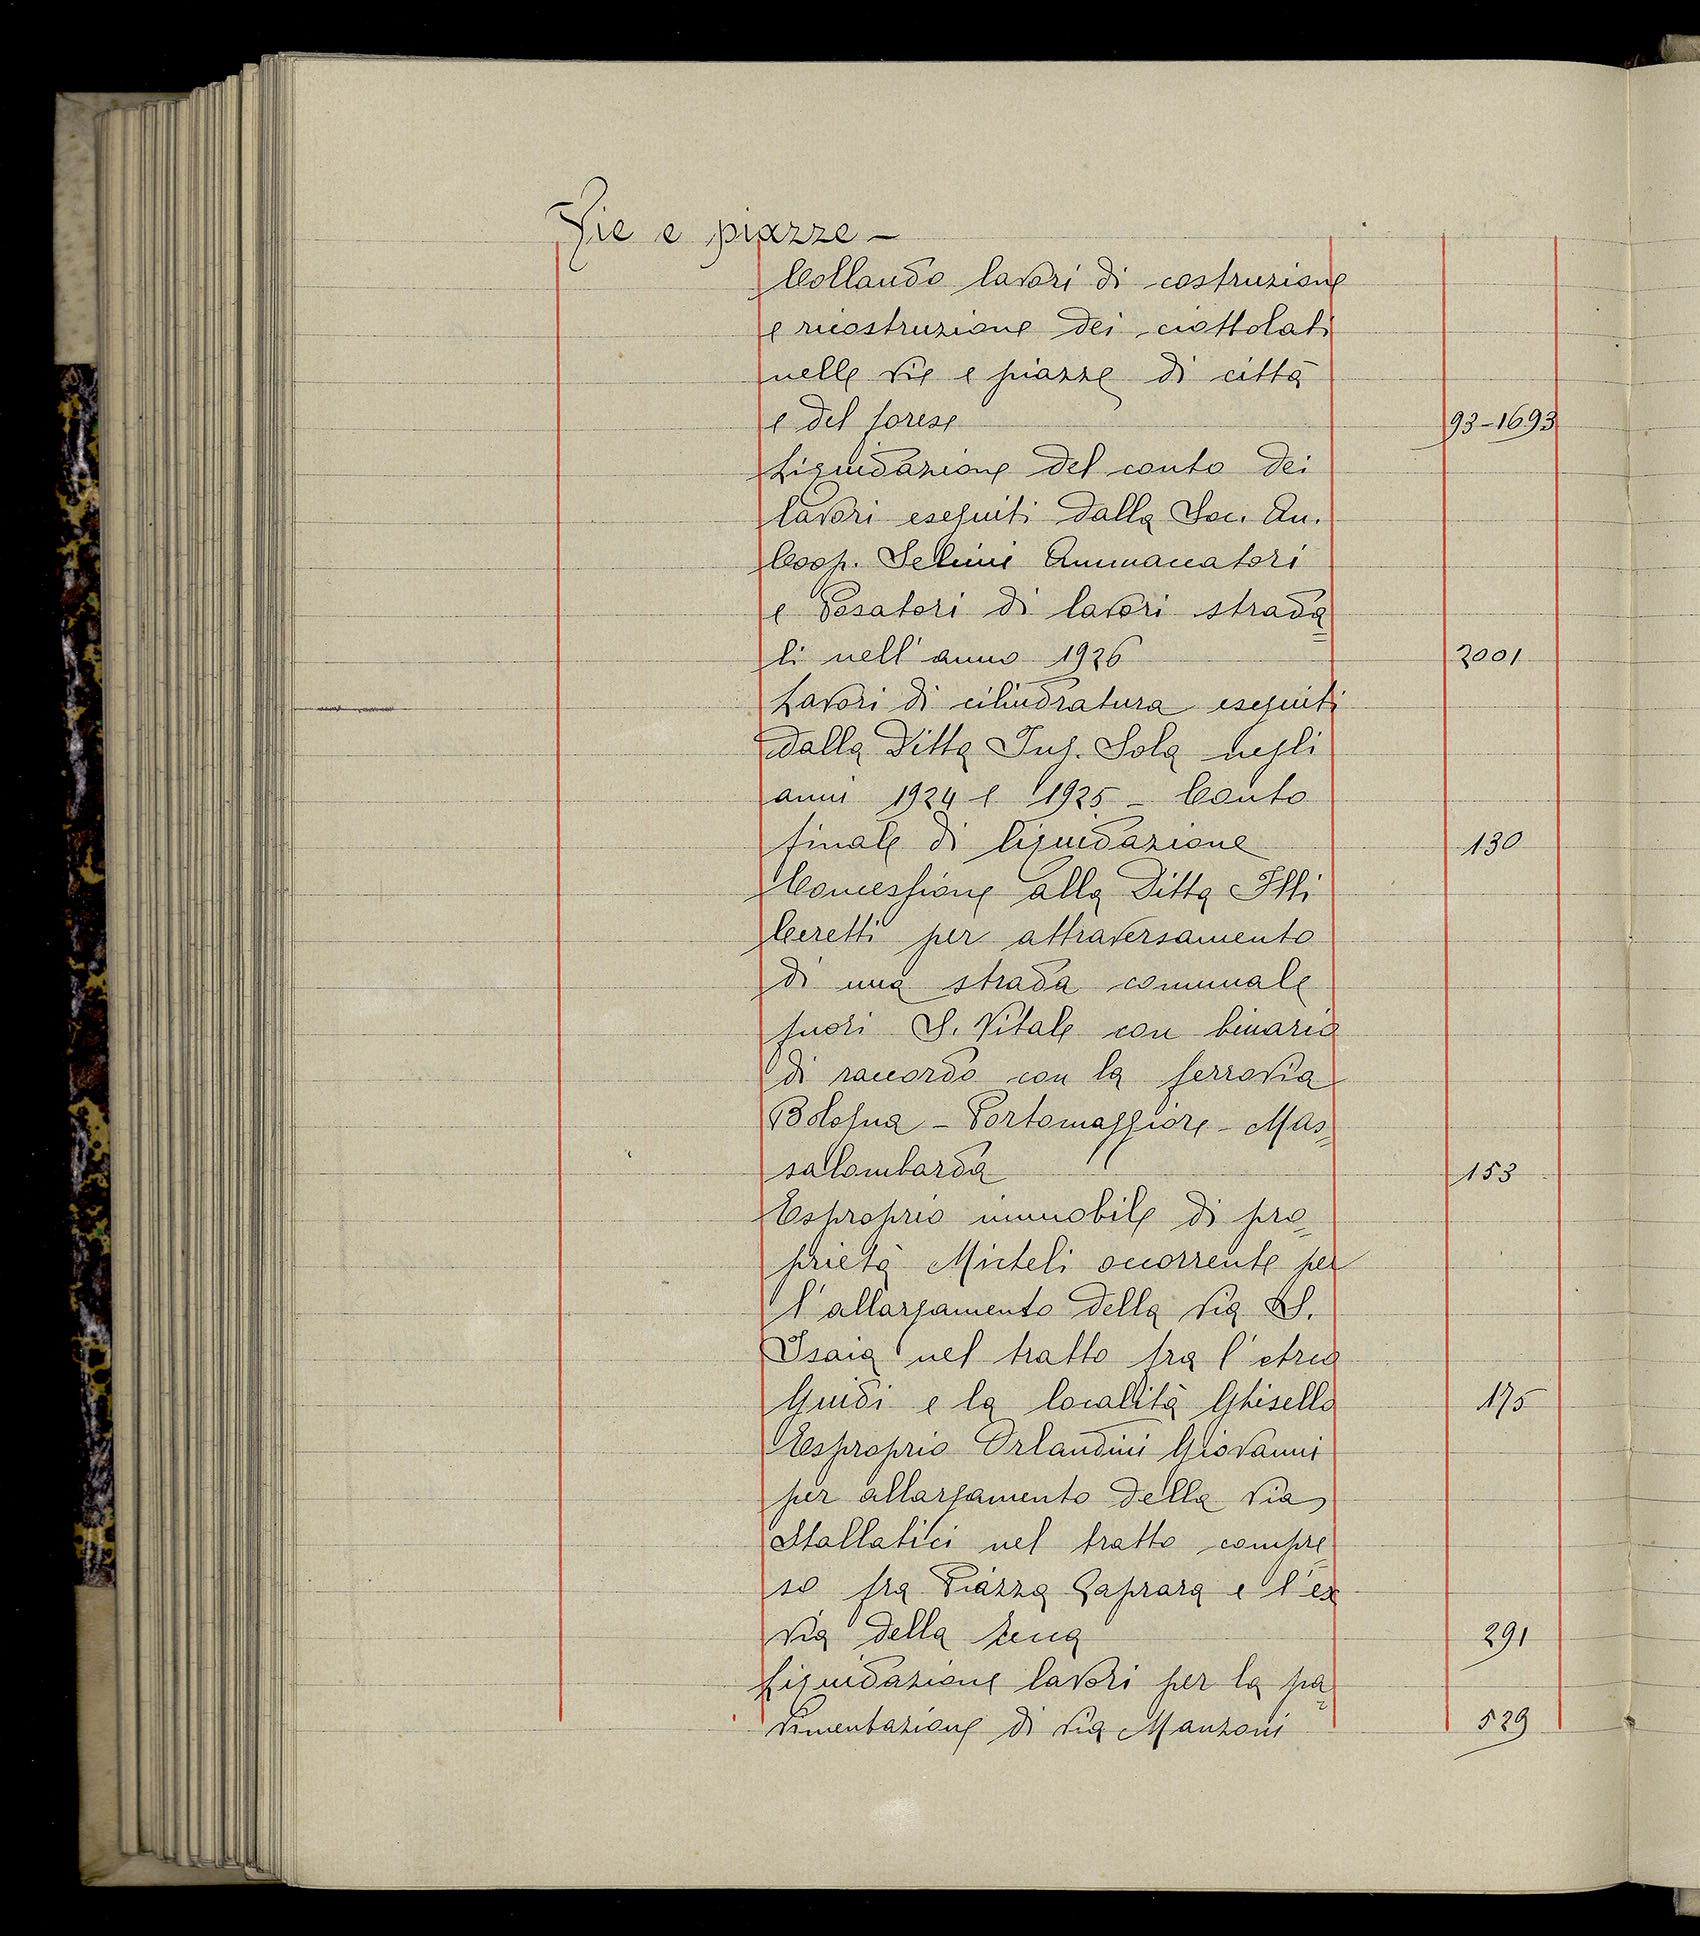 Vie e piazze –
Collaudo lavori di costruzione
e ricostruzione dei ciottolati
nelle vie e piazze di città
e del forese 93-1693
Liquidazione del conto dei
lavori eseguiti dalla Soc. An.
Coop. Selcini Ammaccatori
e Posatori di lavori strada=
li nell'anno 1926 2001
Lavori di cilindratura eseguiti
dalla Ditta Ing. Sola negli
anni 1924 e 1925 – Conto
finale di liquidazione 130
Concessione alla Ditta Flli
Ceretti per attraversamento
di una strada comunale
fuori S. Vitale con binario
di raccordo con la ferrovia
Bologna – Portomaggiore – Mas=
salombarda 153
Esproprio immobile di pro=
prietà Micteli occorrente per
l'allargamento della via S.
Isaia nel tratto fra l'etreo
Guidi e la località Ghisello 175
Esproprio Orlandini Giovanni
per allargamento della via
Stallatici nel tratto compre=
so fra Piazza Caprara e l'ex
via della 291
Liquidazione lavori per la pa=
vimentazione di via Manzoni 529